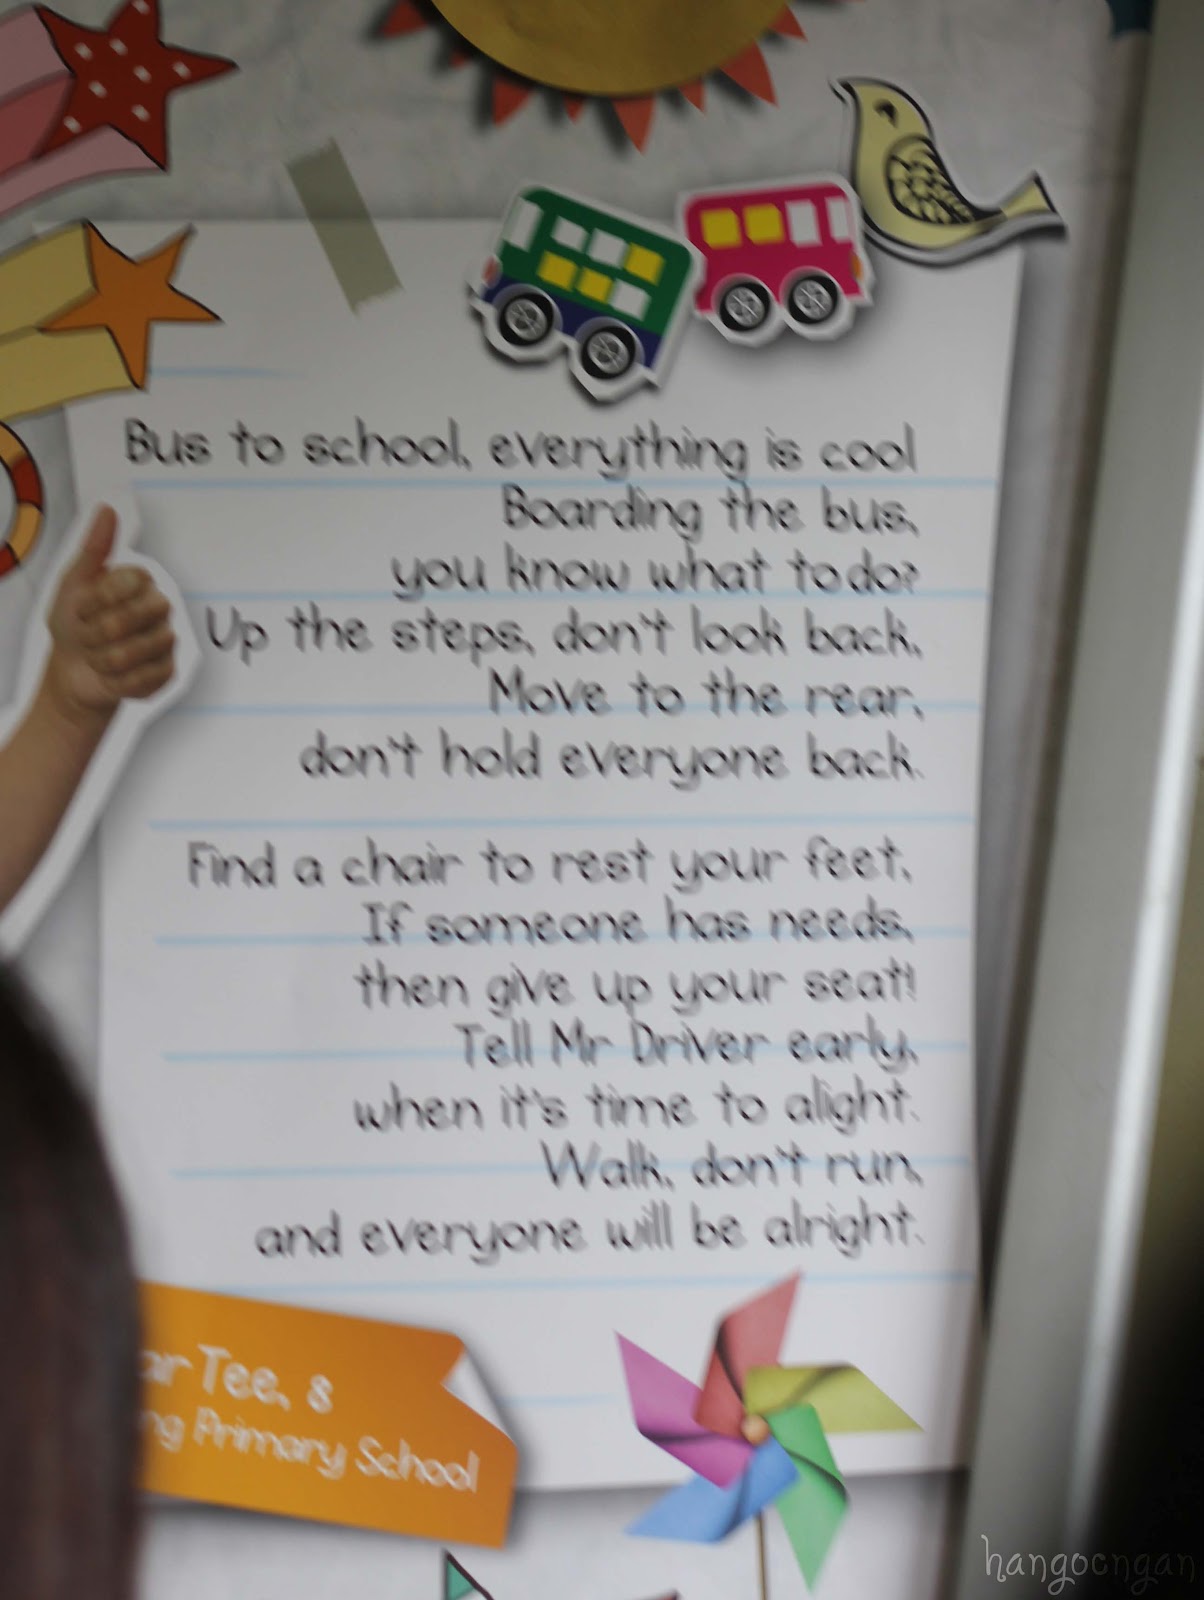 Bus to school, everything is cool
Boarding the bus,
you know what to do?
Up the steps, don't look back,
Move to the rear,
don't hold everyone back.
Find a chair to rest your feet,
If someone has needs,
then give up your seat!
Tell Mr Driver early,
when it's time to alight.
Walk, don't run,
and everyone will be alright.
Tee, 8
Primary School
hangocngan